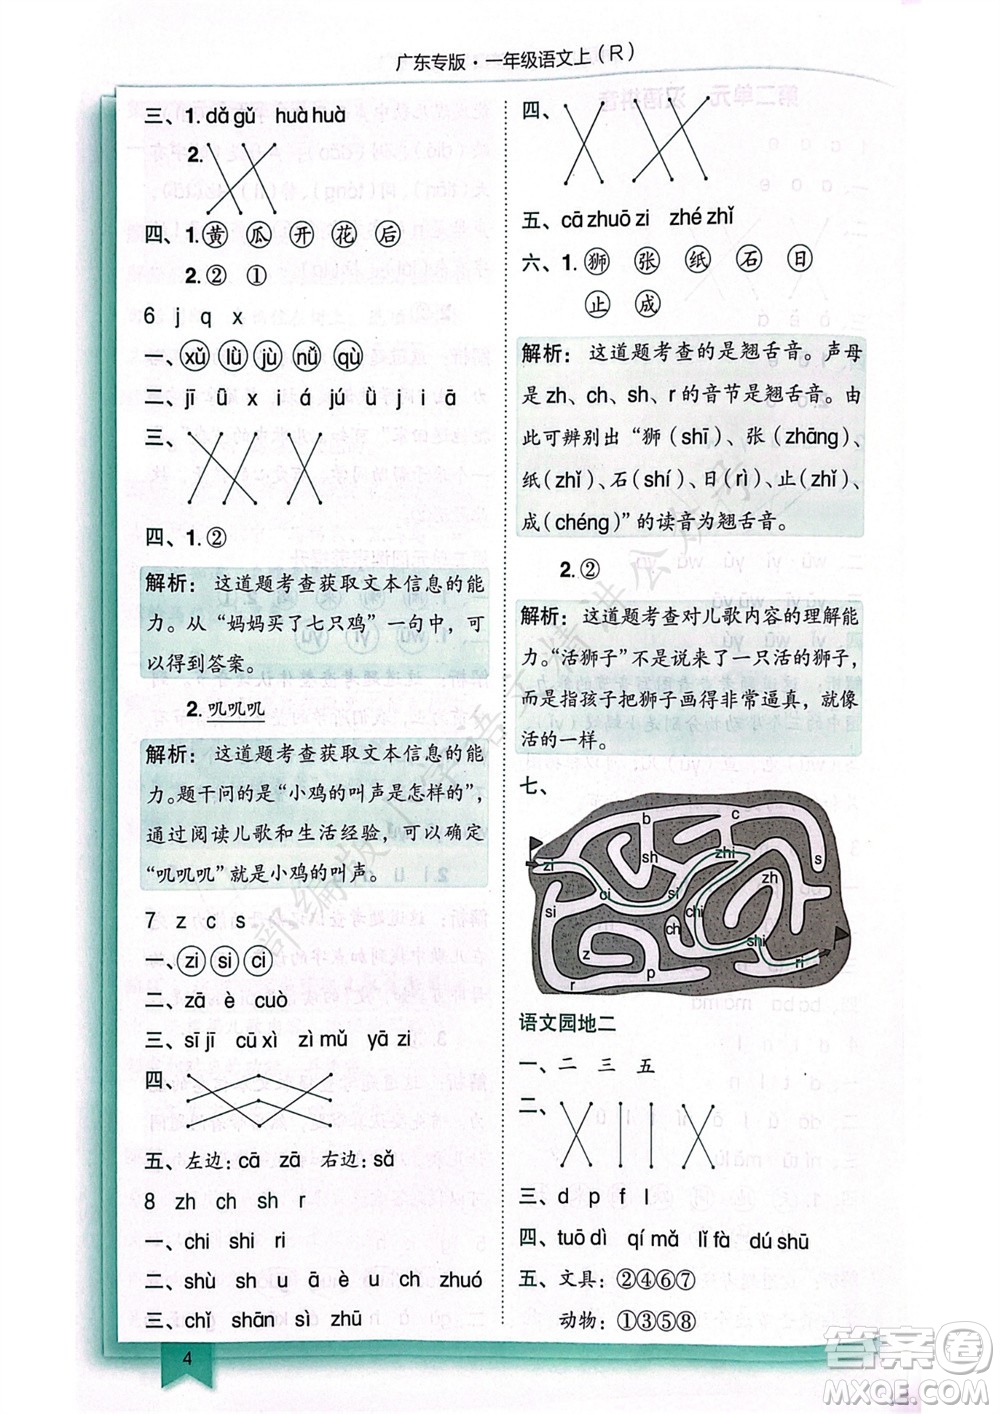 广东专版·一年级语文上(R)
三、1. dǎ gǔ huà huà
2.
四、1. 黄 瓜 开 花 后
2. ② ①
6 j q x
一、xǔ lù jù nǚ qù
二、jī ū x i á jú ù j i ā
三、
四、1. ②
解析：这道题考查获取文本信息的能
力。从“妈妈买了七只鸡”一句中，可
以得到答案。
2. 叽叽叽
解析：这道题考查获取文本信息的能
力。题干问的是“小鸡的叫声是怎样的”，
通过阅读儿歌和生活经验，可以确定
“叽叽叽”就是小鸡的叫声。
7 z c s
一、zi si ci
二、zā è cuò
三、sī jī cū xì zì mǔ yā zi
四、
五、左边：cā zā 右边：sǎ
8 zh ch sh r
一、chi shi ri
二、shù sh u ā è u ch zhuó
三、chǐ shān sì zhū
四、
五、cā zhuō zi zhé zhǐ
六、1. 狮 张 纸 石 日
止 成
解析：这道题考查的是翘舌音。声母
是 zh、ch、sh、r 的音节是翘舌音。由
此可辨别出“狮(shī)、张(zhāng)、
纸(zhǐ)、石(shí)、日(rì)、止(zhǐ)、
成(chéng)”的读音为翘舌音。
2. ②
解析：这道题考查对儿歌内容的理解能
力。“活狮子”不是说来了一只活的狮子，
而是指孩子把狮子画得非常逼真，就像
活的一样。
七、
b c
zi sh zhi s
si ci si zh
chi ch shi
z ri
r p
语文园地二
一、一 二 三 五
二、
三、d p f l
四、tuō dì qí mǎ lǐ fà dú shū
五、文具：②④⑥⑦
动物：①③⑤⑧
4
答案圈
MXQE.COM